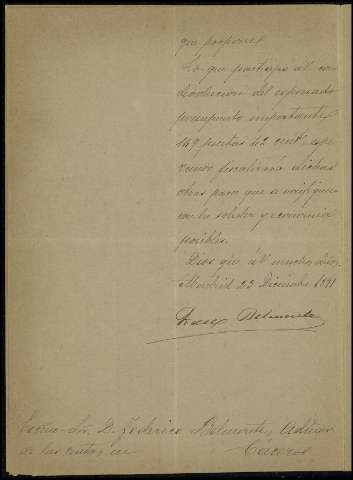 que propone.
Lo que participo á V. con
devolucion del expresado
presupuesto importante
149 pesetas 42 cent.s espe-
rando fiscalizará dichas
obras para que se verifiquen
con la solidez y economia
posibles.
Dios gue. á V. muchos años.
Madrid 23 Diciembre 1891
Belmonte
Excmo. Sr. D. Federico Belmonte, Admor.
de las rentas en Cáceres